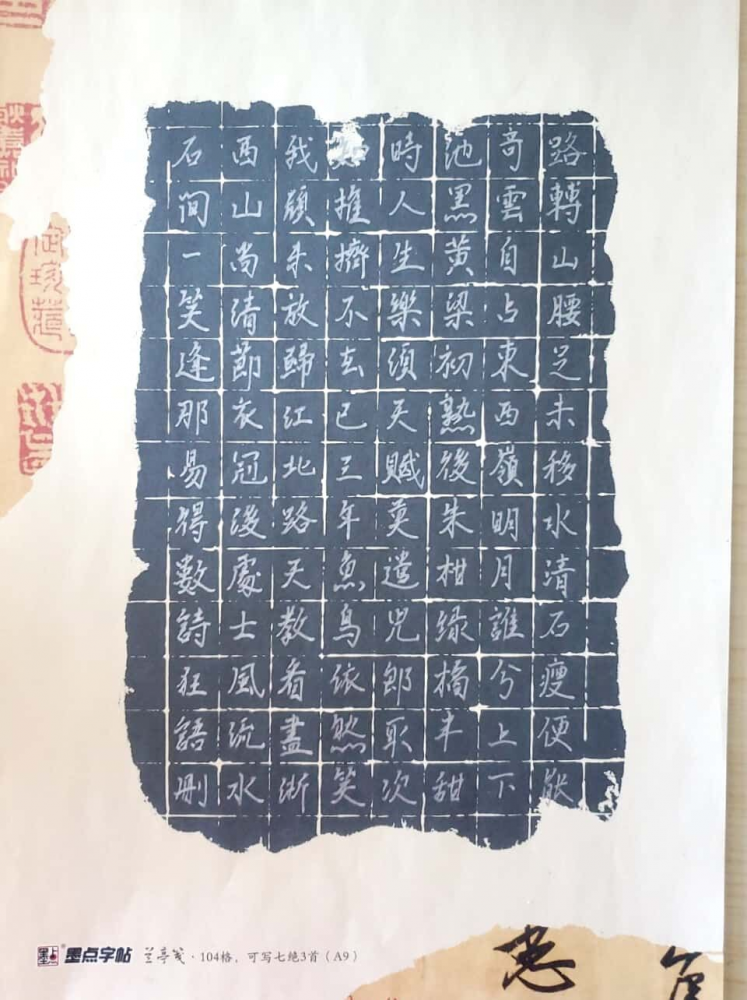 路轉山腰足未移水清石瘦便能
奇雲自占東西嶺明月誰分上下
池黑黄梁初熟後朱柑綠橘半甜
時人生樂須天賦莫遣兒郎取次
推擠不去已三年魚鳥依然笑
我頑未放歸江北路天教看盡浙
西山尚清節衣冠後處士風流水
石間一笑逢那易得數詩狂語刪
墨点字帖 兰亭笺·104格，可写七绝3首（A9）